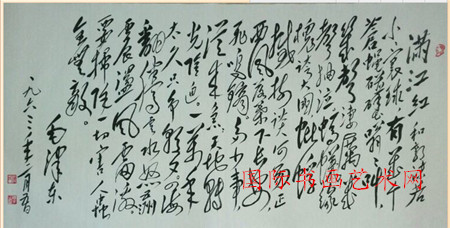 滿江红 和郭沫若
小小寰球 有几个
苍蝇碰壁嗡嗡叫
几声凄厉几
声抽泣蚂蚁缘
槐夸大国蚍蜉
撼树谈何易正
西风落叶下长安
飞鸣镝多少事
从来急天地转
光阴迫一万年
太久只争朝夕四海
翻腾云水怒五洲
震荡风雷激
要扫除一切害人虫
全无敌
毛泽东
一九六三年一月
国际书画艺术网